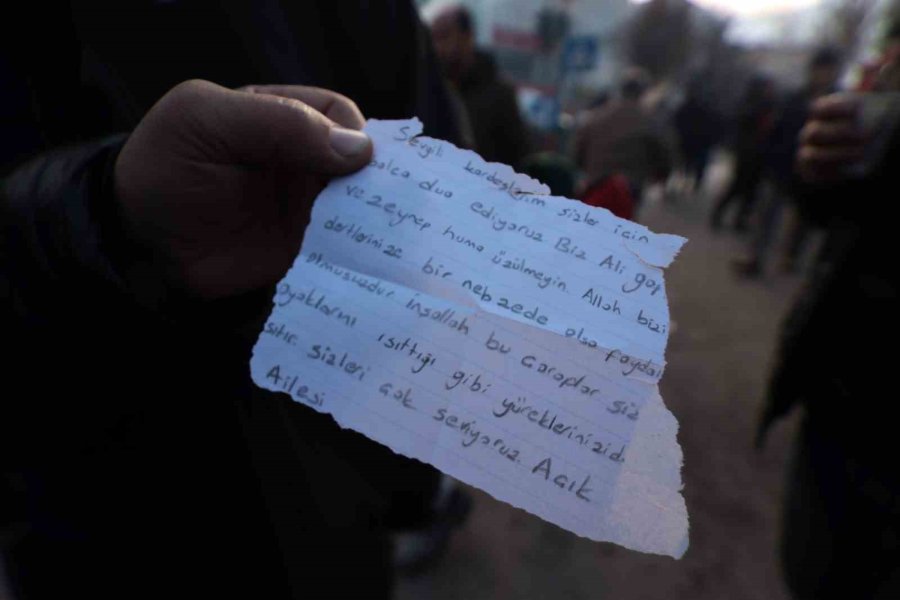 Sevgili kardeşlerim sizler için
bolca dua ediyoruz Biz Ali gap
ve zeynep huma üzülmeyin. Allah bizi
dertlerinize bir nebzede olsa faydalı
olmuşuzdur. İnşallah bu çoraplar siz
ayaklarını ısıttığı gibi yüreklerinizid
sıtır. sizleri çok seviyoruz. Açık
Ailesi